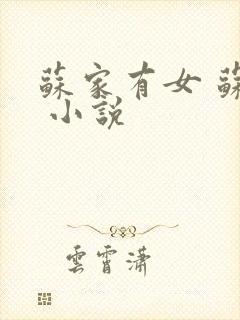 蘇家有女 蘇
小說
雲霄瀟